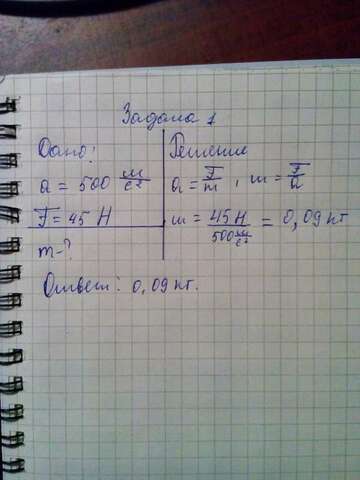 Задача 1
Дано:
a = 500 м/с²
F = 45 Н
m - ?
Решение
a = F/m, m = F/a
m = 45 Н / 500 м/с² = 0,09 кг
Ответ: 0,09 кг.